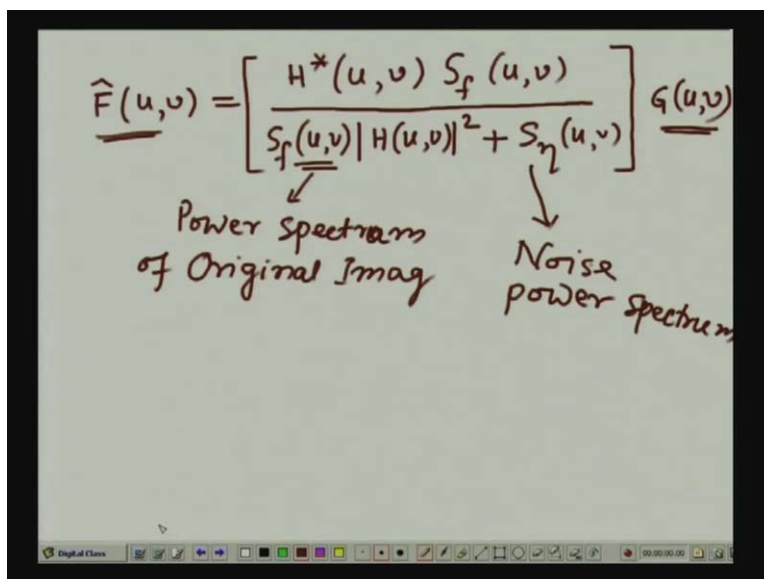 F̂(u,υ) = [ H*(u,υ) S_f (u,υ) / S_f(u,υ)|H(u,υ)|² + S_η(u,υ) ] G(u,υ)
Power Spectrum
of Original Imag
Noise
power spectrum
Digital Class
00:00:00.00